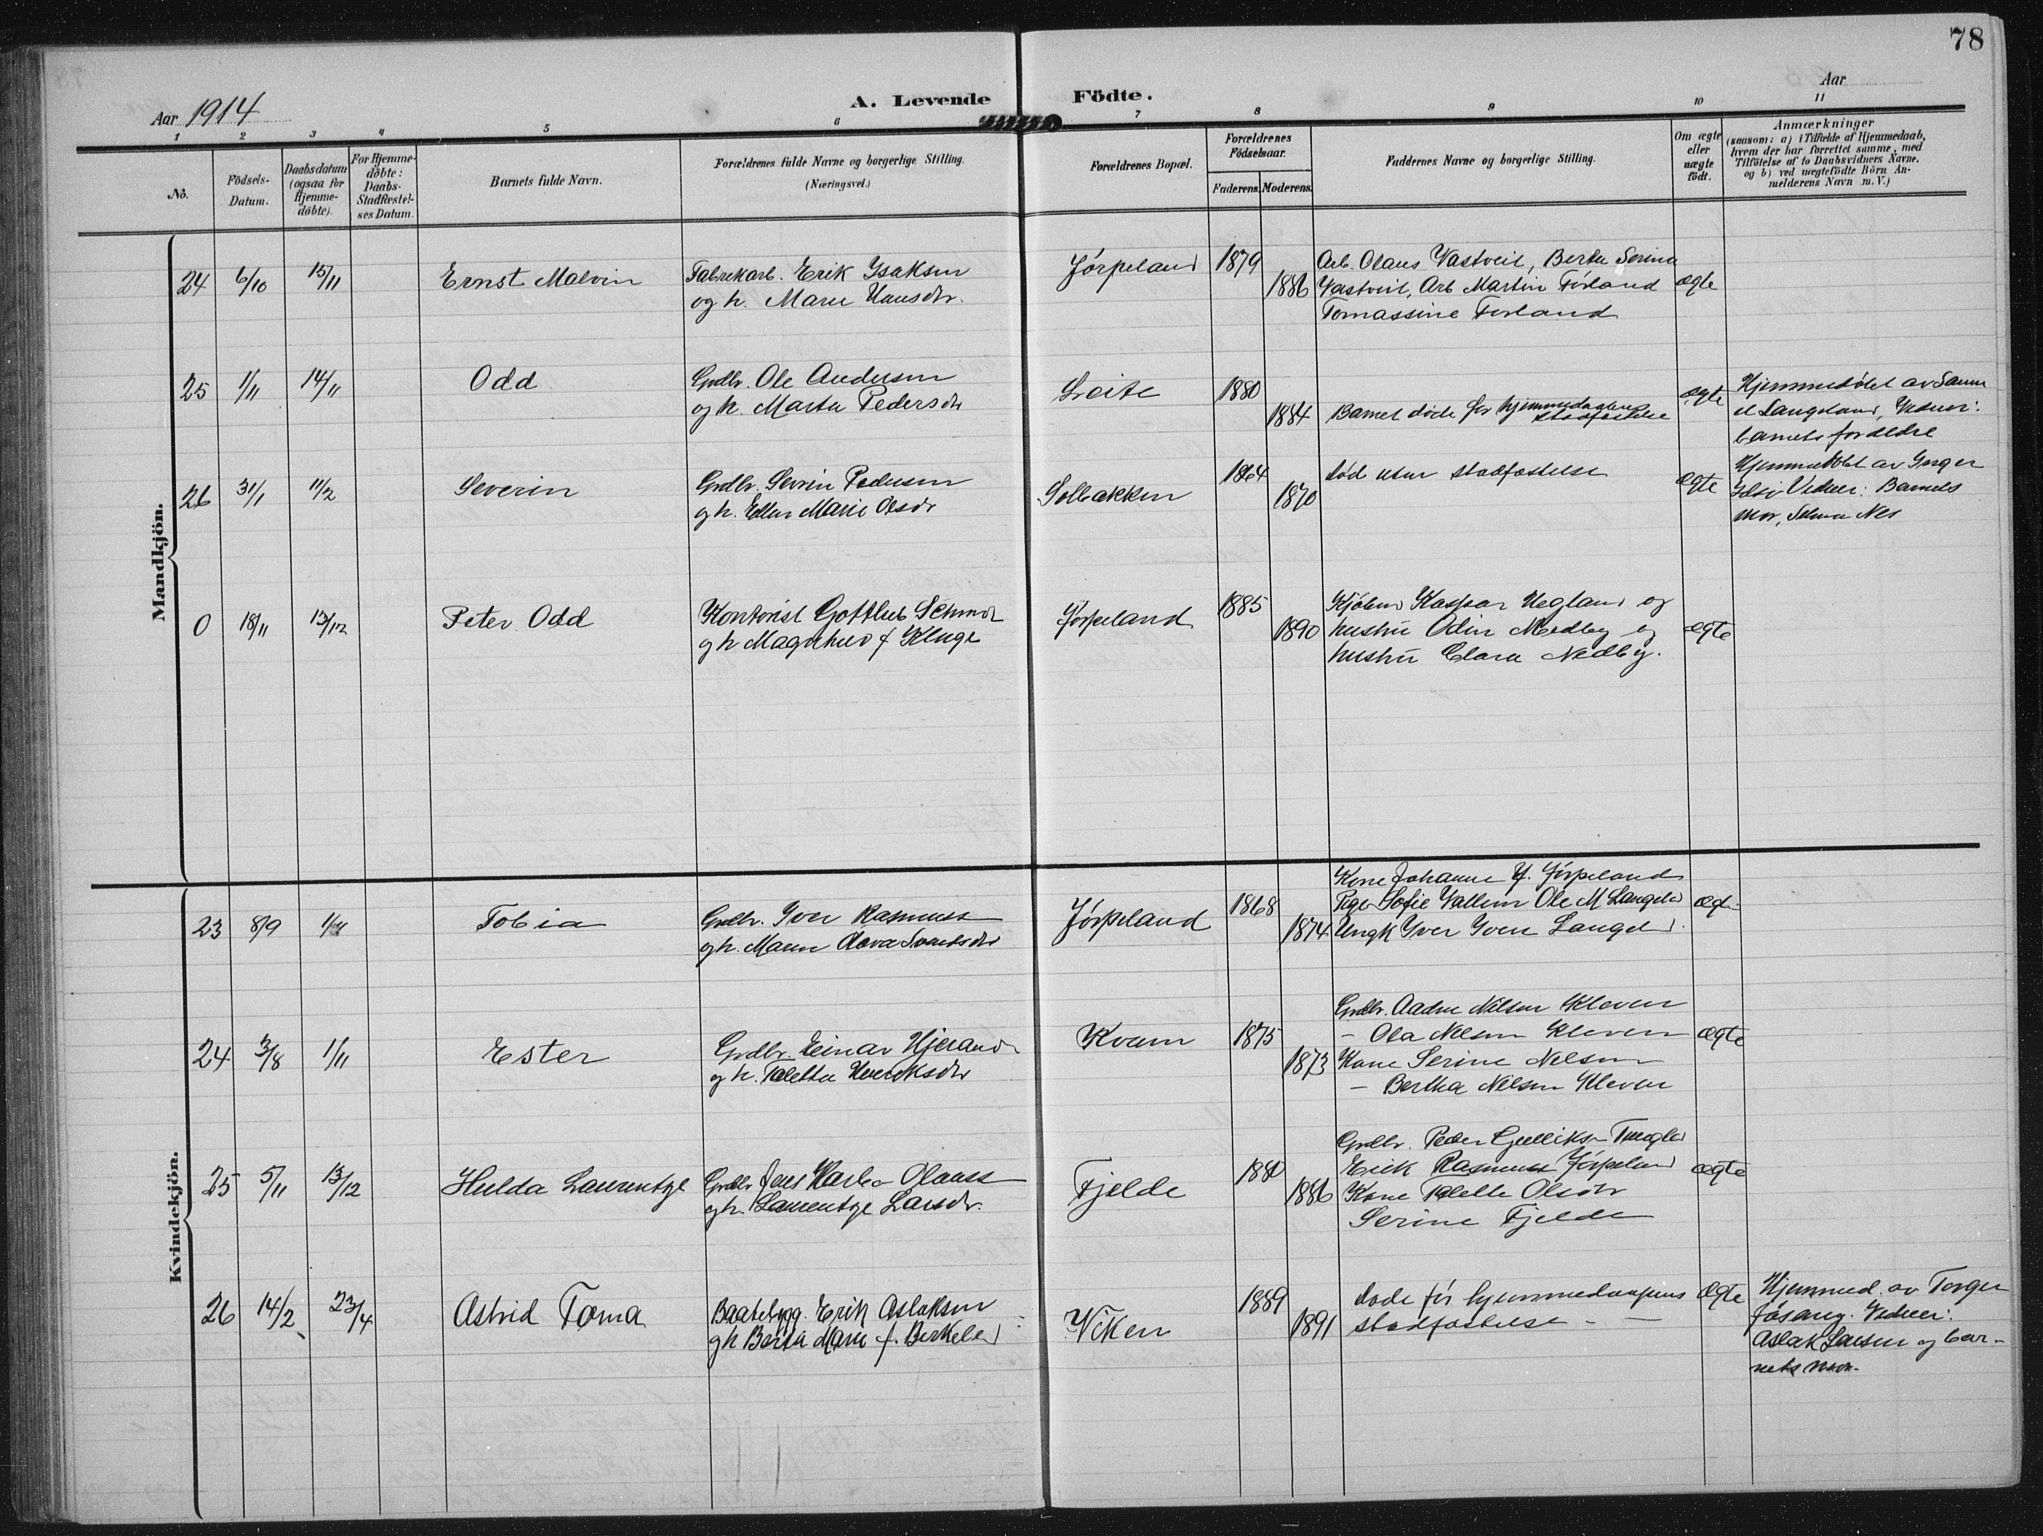 78
Aar 1914
A. Levende Födte.
Aar
1 2 3 4 5 6 7 8 9 10 11
No.
Födsels-
Datum.
Daabsdatum
(ogsaa for
Hjemme-
döbte).
For Hjemme-
döbte:
Daabs-
Stadfæstel-
ses Datum.
Barnets fulde Navn.
Forældrenes fulde Navne og borgerlige Stilling.
(Næringsvei.)
Forældrenes Bopæl.
Forældrenes
Födselsaar.
Faderens. Moderens.
Faddernes Navne og borgerlige Stilling.
Om ægte
eller
uægte
födt.
Anmærkninger
(saasom: a) i Tilfælde af Hjemmedaab,
hvem der har forrettet samme, med
Tilföielse af to Daabsvidners Navne,
og b) ved uægtefödte Börn An-
melderens Navn m. V.)
Mandkjön.
24 6/10 15/11 Ernst Malvin
Fabrikarb. Erik Isaksen
og h. Maren Hansdtr.
Jørpeland 1879
1886
Arb. Olaus Vastveit, Berta Serina
Vastveit, Arb Martin Førland
Tomassine Førland
ægte
25 1/11 14/11 Odd
Grdbr. Ole Andersen
og h. Marta Pedersdtr
Leite 1880
1884
Barnet døde før hjemmedaapens
stadfæstelse
ægte
Hjemmedøbt av Samu
el Langeland, Vidner:
barnets forældre
26 31/1 11/2 Severin
Grdbr. Sevrin Pedersen
og h. Ellen Marie Olsdtr
Solbakken 1864
1870
død uten stadfæstelse
ægte
Hjemmedøbt av Inger
Vidner: Barnets
mor, Selma Nes
0 18/11 13/12 Peter Odd
Kontorist Gottlieb
og h f. Kluge
Jørpeland 1885
1890
Kaspar Hegland og
hustru Odin Nedby og
hustru Clara Nedby.
ægte
Kvindekjön.
23 8/9 1/11 Tobia
Grdbr. Iver Rasmuss
og h. Maren
Jørpeland 1868
1874
Kone Johanne Jørpeland
Pige Sofie Vallem Ole M Langeld
Ungk Iver Iversen Langeld.
ægt.
24 3/8 1/11 Ester
Grdbr. Einar Hjerand
og h. Taletta Henriksdtr
Kvam 1875
1873
Grdbr. Aadne Nilsen Kleven
- Ola Nilsen Kleven
Kone Serine Nilsen
- Bertha Nilsen Kleven
ægte
25 5/11 13/12 Hulda Laurentze
Grdbr Jens Karlo Olauss
og h. Laurentze Larsdtr.
Fjelde 1880
1886
Grdbr. Peder Gulliks
Erik Rasmuss Jørpeland
Kone Talette Olsdtr
Serine Fjelde
ægte
26 14/2 23/4 Astrid Toma
Baatbygg. Erik Aslaksen
og h Berta Marie f. Berkeld
Viken 1889
1891
døde før hjemmedaapens
stadfæstelse - -
ægte
Hjemmed. av Torger
Jøsang. Vidner:
Aslak Larsen og bar-
nets mor.